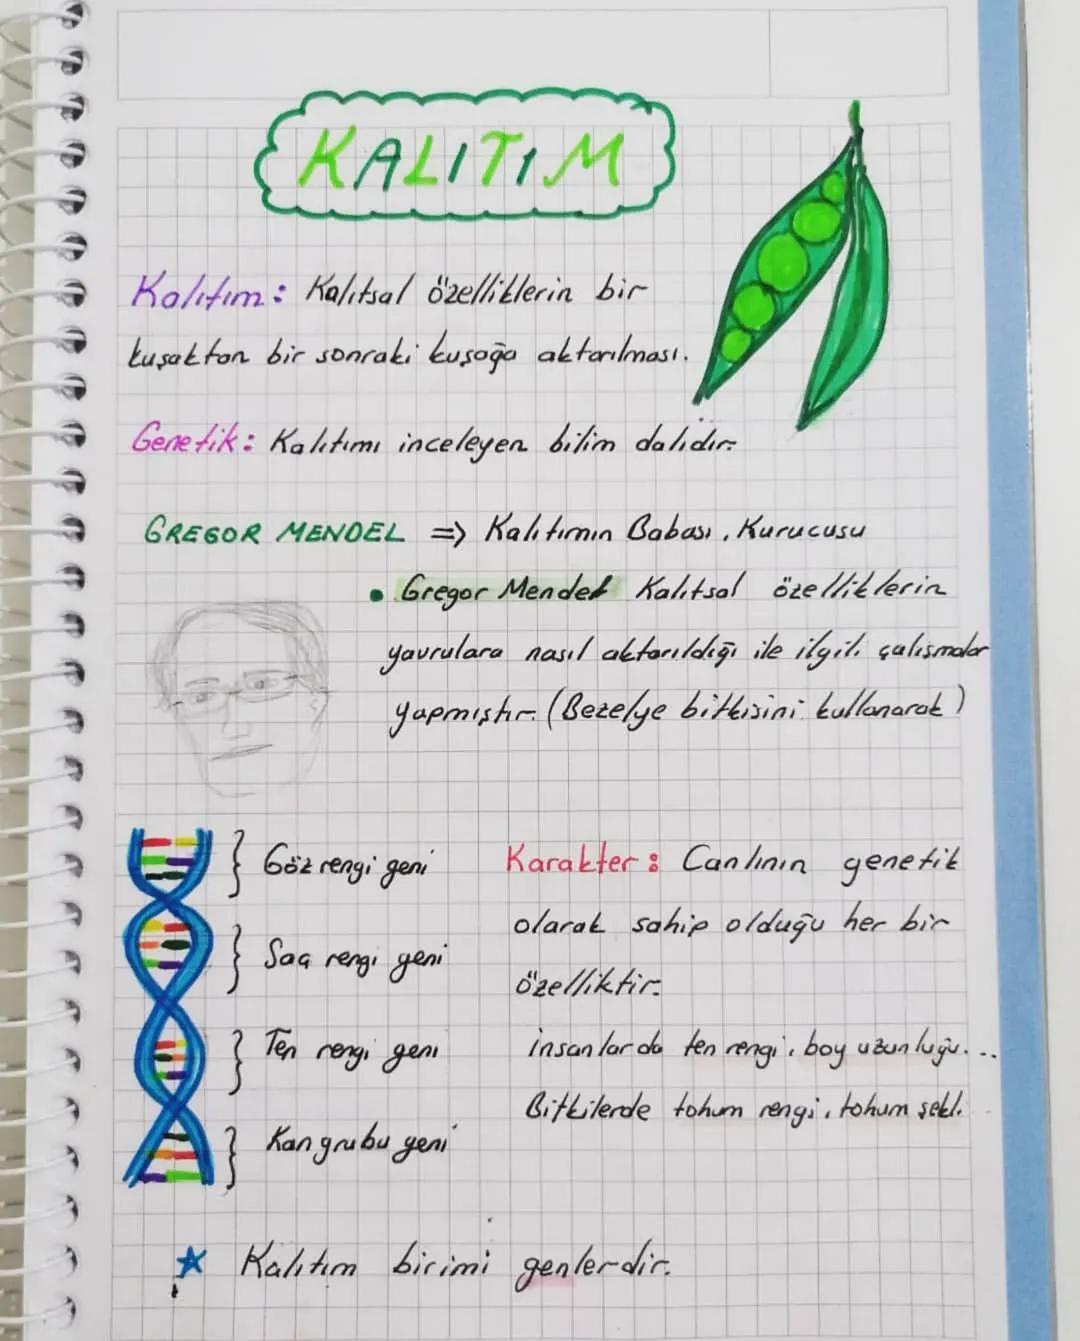 KALITIM
Kalıtım: Kalıtsal özelliklerin bir
kuşaktan bir sonraki kuşağa aktarılması.
Genetik: Kalıtımı inceleyen bilim dalıdır.
GREGOR MENDEL => Kalıtımın Babası, Kurucusu
• Gregor Mendel Kalıtsal özelliklerin
yavrulara nasıl aktarıldığı ile ilgili çalışmalar
yapmıştır. (Bezelye bitkisini kullanarak)
Göz rengi geni
Saç rengi geni
Ten rengi geni
Kan grubu geni
Karakter: Canlının genetik
olarak sahip olduğu her bir
özelliktir.
insanlarda ten rengi, boy uzunluğu...
Bitkilerde tohum rengi, tohum şekli.
★ Kalıtım birimi genlerdir.